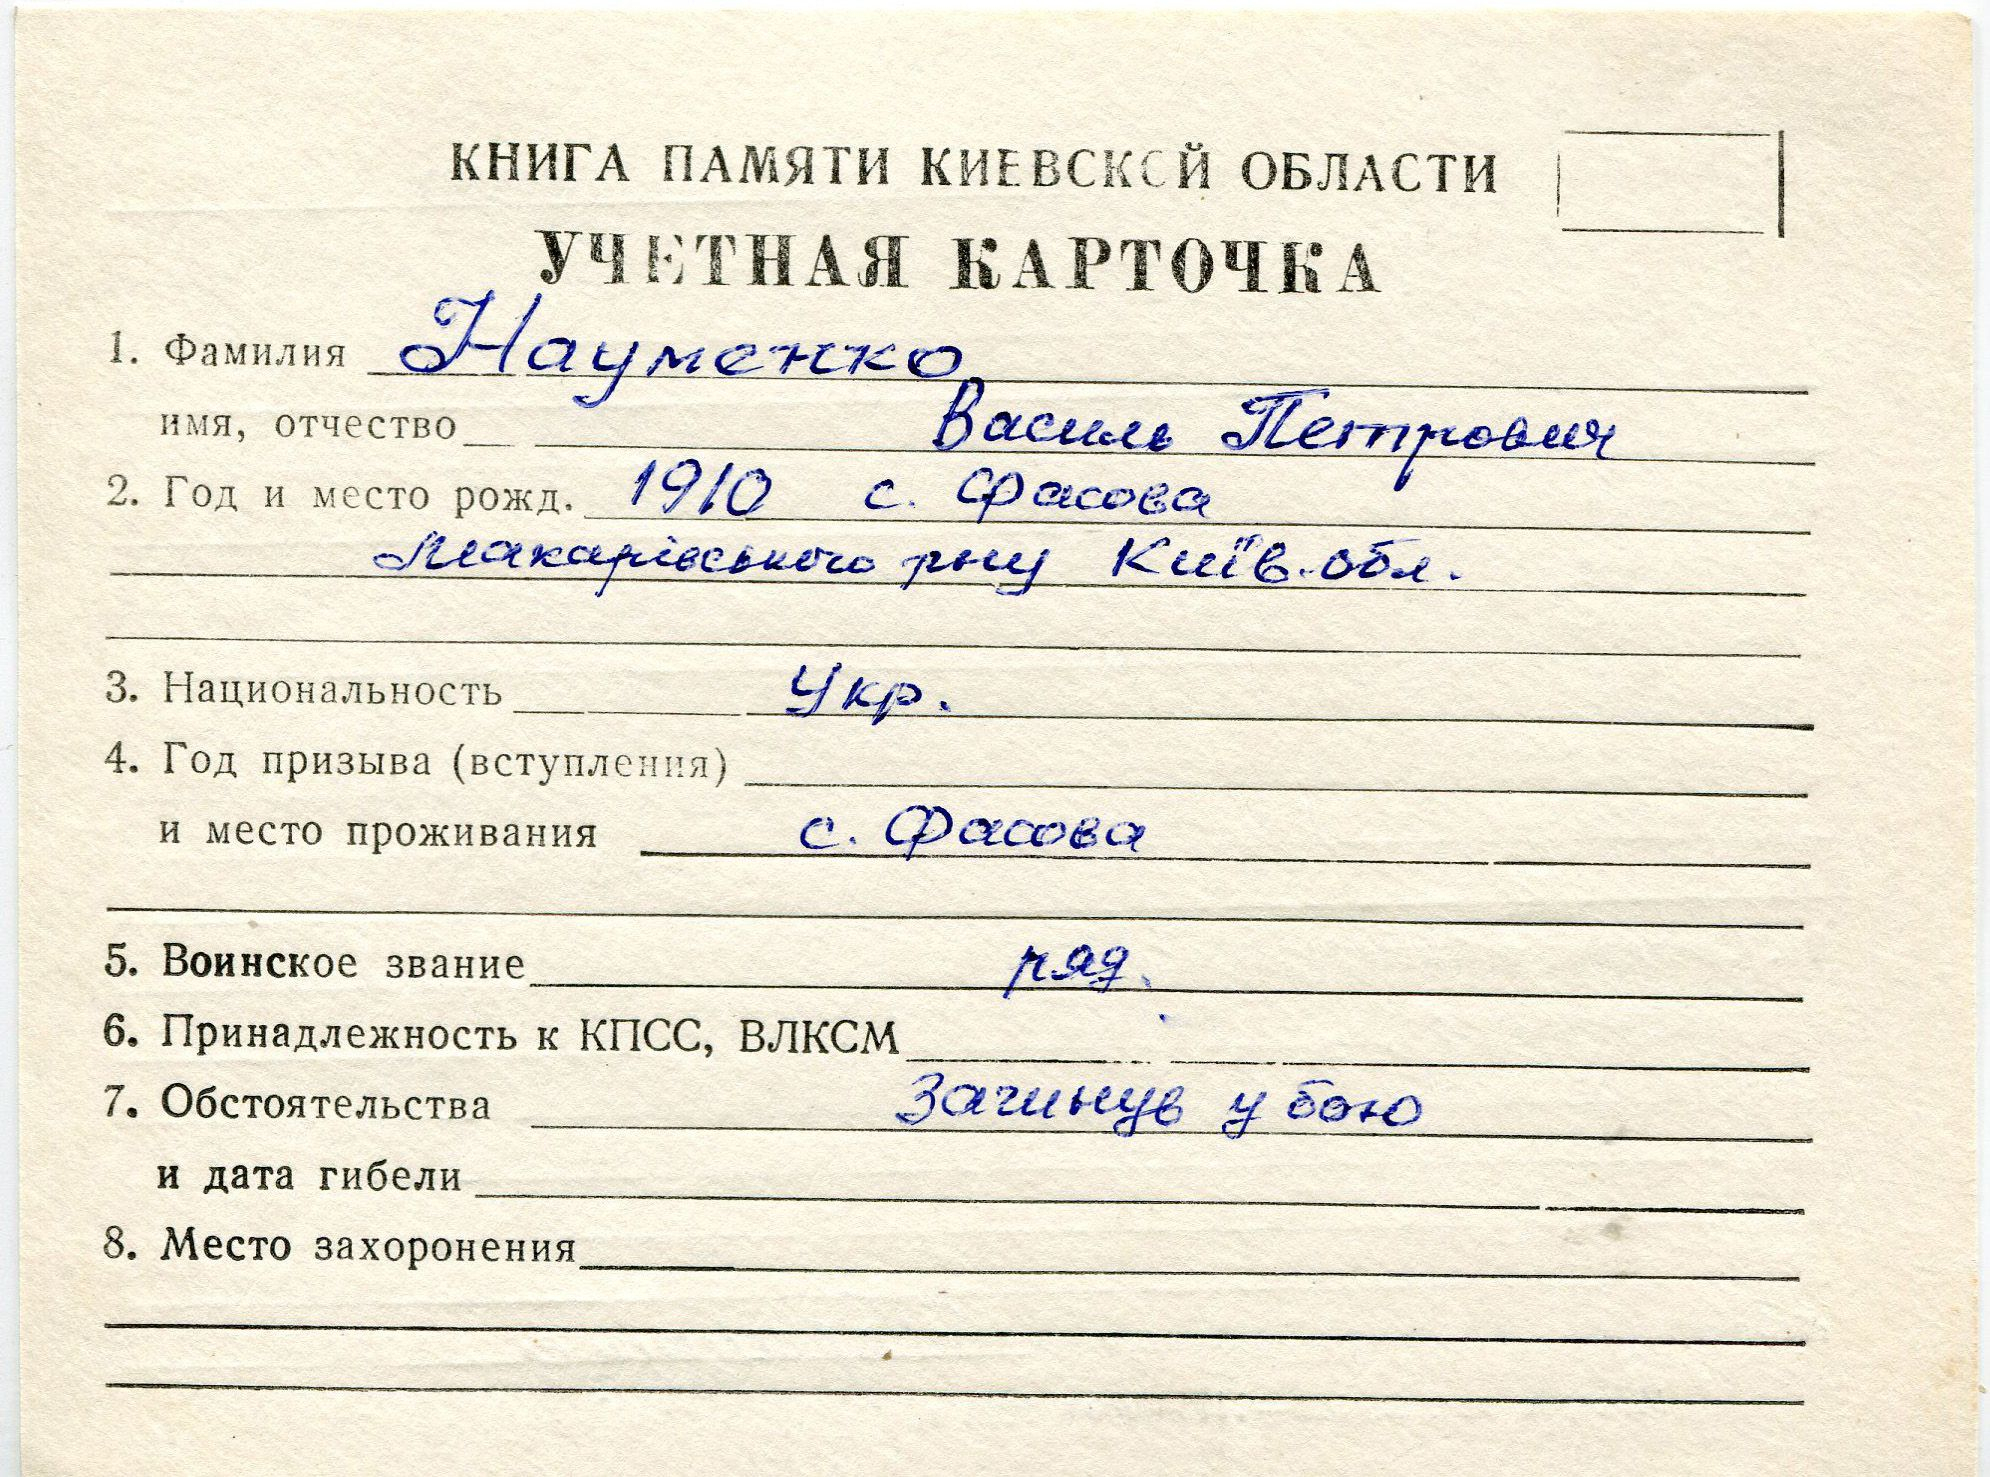 КНИГА ПАМЯТИ КИЕВСКОЙ ОБЛАСТИ
УЧЕТНАЯ КАРТОЧКА
1. Фамилия Науменко
имя, отчество Василь Петрович
2. Год и место рожд. 1910 с. Фасова
Макарівського р-ну Київ. обл.
3. Национальность Укр.
4. Год призыва (вступления)
и место проживания с. Фасова
5. Воинское звание ряд.
6. Принадлежность к КПСС, ВЛКСМ
7. Обстоятельства Загинув у бою
и дата гибели
8. Место захоронения